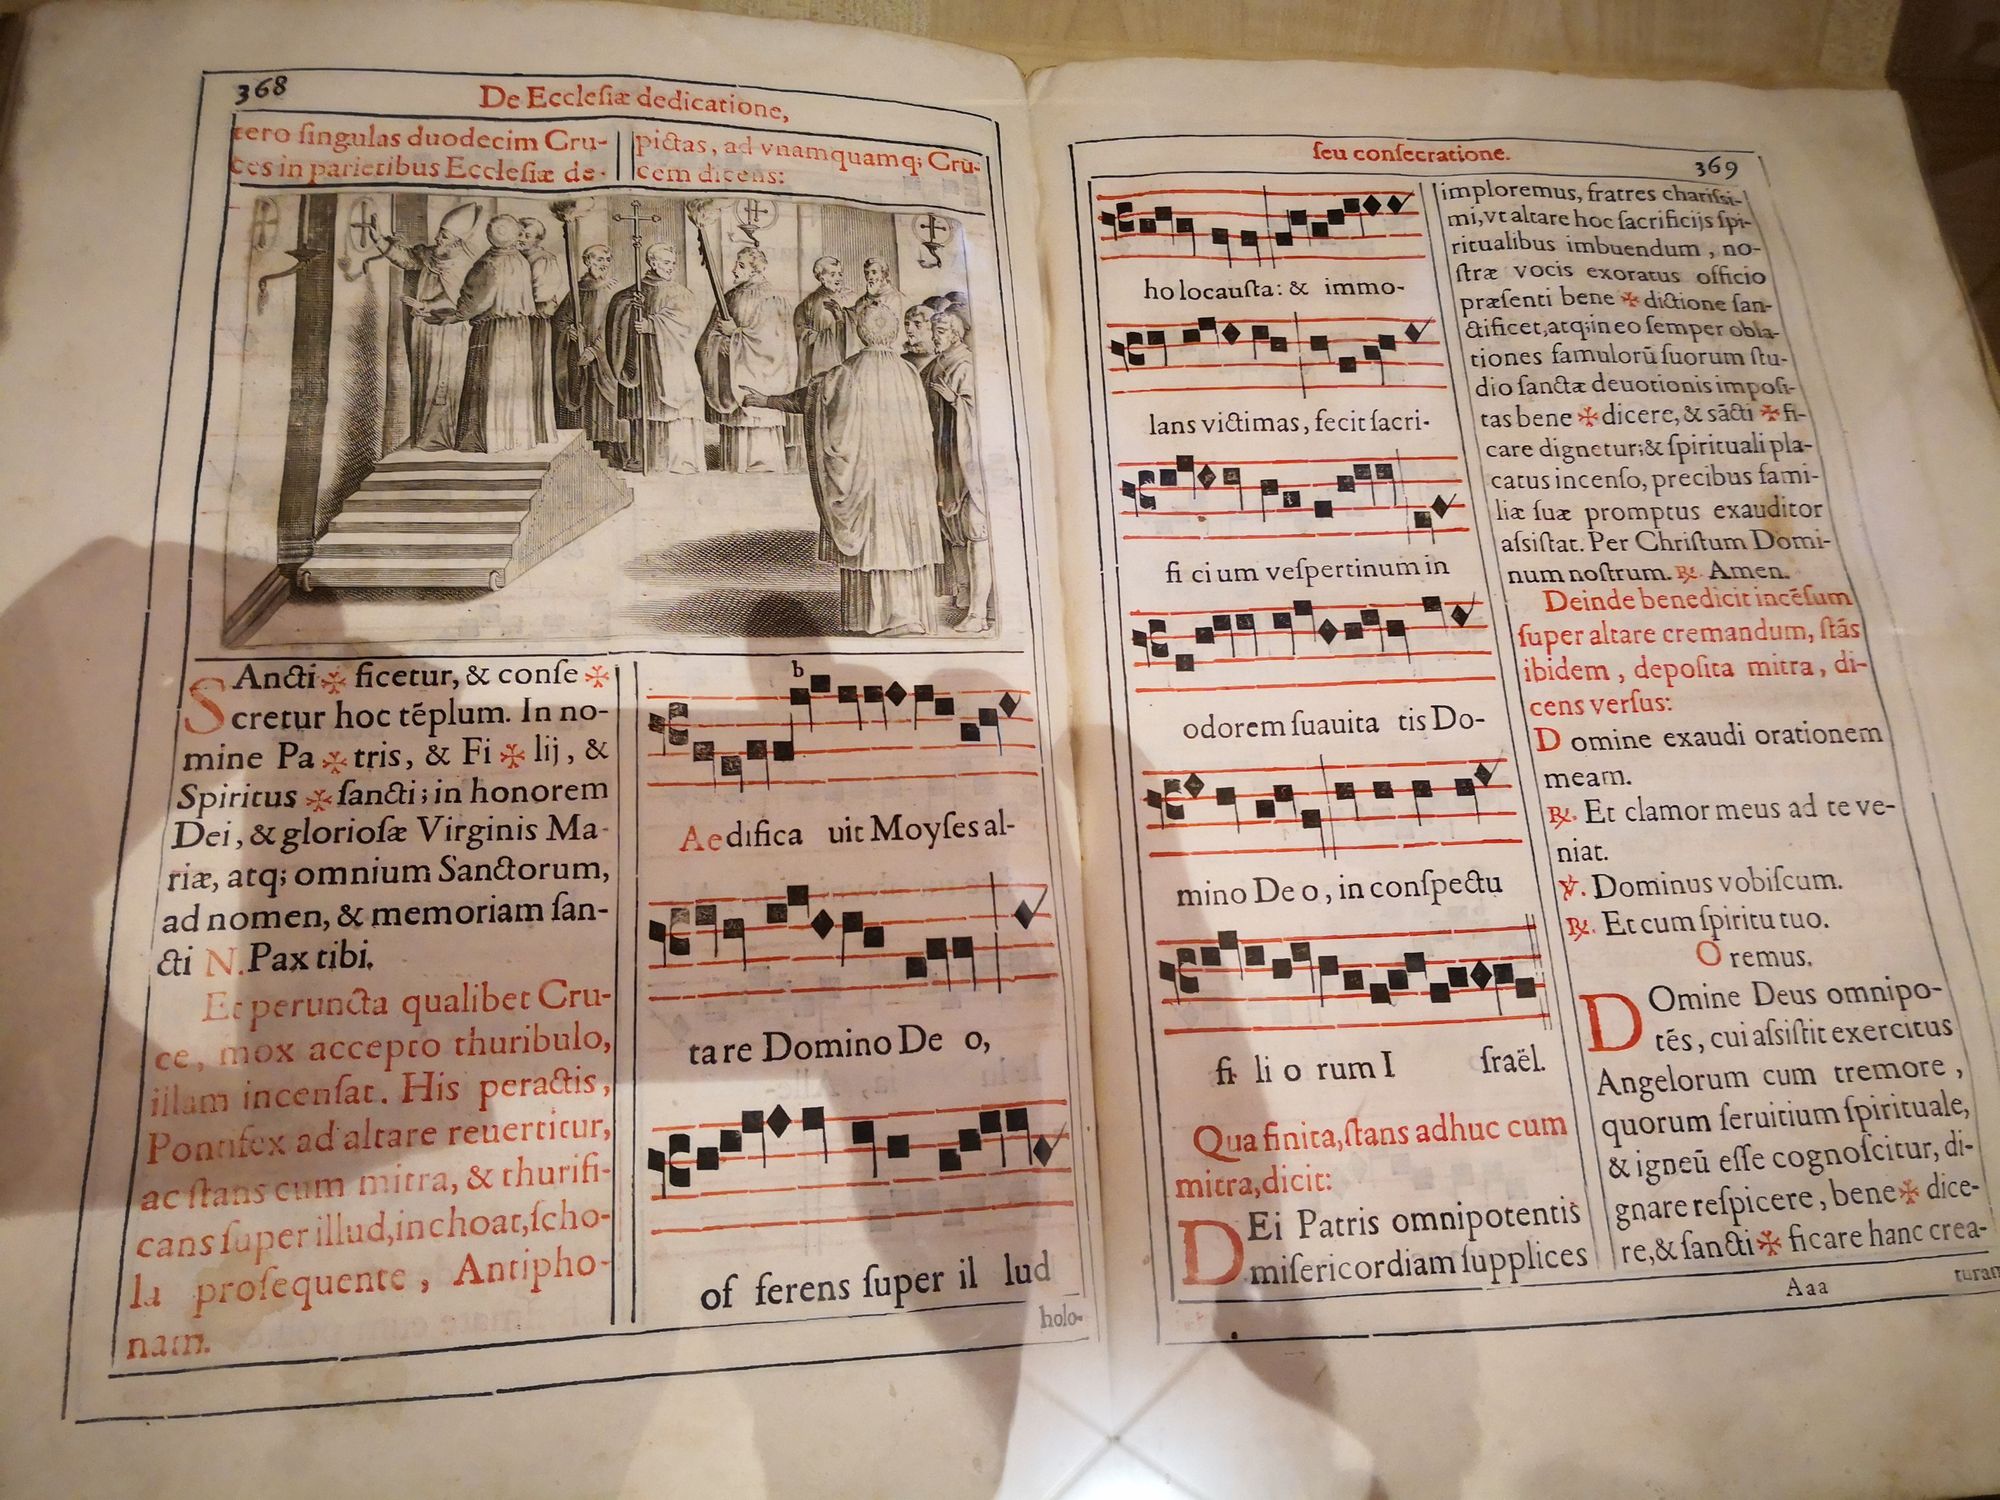 368
De Eccleſiæ dedicatione,
tero ſingulas duodecim Cru-
ces in parietibus Eccleſiæ de-
pictas, ad vnamquamq; Crū-
cem dicens:
SAncti ✠ ficetur, & conſe ✠
cretur hoc tẽplum. In no-
mine Pa ✠ tris, & Fi ✠ lij, &
Spiritus ✠ ſancti; in honorem
Dei, & glorioſæ Virginis Ma-
riæ, atq; omnium Sanctorum,
ad nomen, & memoriam ſan-
cti N. Pax tibi.
Et peruncta qualibet Cru-
ce, mox accepto thuribulo,
illam incenſat. His peractis,
Pontifex ad altare reuertitur,
ac ſtans cum mitra, & thurifi-
cans ſuper illud, inchoat, ſcho-
la proſequente, Antipho-
nam.
b
Aedifica uit Moyſes al-
tare Domino De o,
of ferens ſuper il lud
holo-
ſeu conſecratione.
369
holocauſta: & immo-
lans victimas, fecit ſacri-
fi ci um veſpertinum in
odorem ſuauita tis Do-
mino De o, in conſpectu
fi li o rum I ſraël.
Qua finita, ſtans adhuc cum
mitra, dicit:
DEi Patris omnipotentis
miſericordiam ſupplices
imploremus, fratres chariſsi-
mi, vt altare hoc ſacrificijs ſpi-
ritualibus imbuendum, no-
ſtræ vocis exoratus officio
præſenti bene ✠ dictione ſan-
ctificet, atq; in eo ſemper obla-
tiones famulorū ſuorum ſtu-
dio ſanctæ deuotionis impoſi-
tas bene ✠ dicere, & sācti ✠ fi-
care dignetur; & ſpirituali pla-
catus incenſo, precibus fami-
liæ ſuæ promptus exauditor
aſsiſtat. Per Chriſtum Domi-
num noſtrum. ℞. Amen.
Deinde benedicit incẽſum
ſuper altare cremandum, ſtãs
ibidem, depoſita mitra, di-
cens verſus:
Domine exaudi orationem
meam.
℞. Et clamor meus ad te ve-
niat.
℣. Dominus vobiſcum.
℞. Et cum ſpiritu tuo.
Oremus.
DOmine Deus omnipo-
tẽs, cui aſsiſtit exercitus
Angelorum cum tremore,
quorum ſeruitium ſpirituale,
& igneū eſſe cognoſcitur, di-
gnare reſpicere, bene ✠ dice-
re, & ſancti ✠ ficare hanc crea-
Aaa
turam